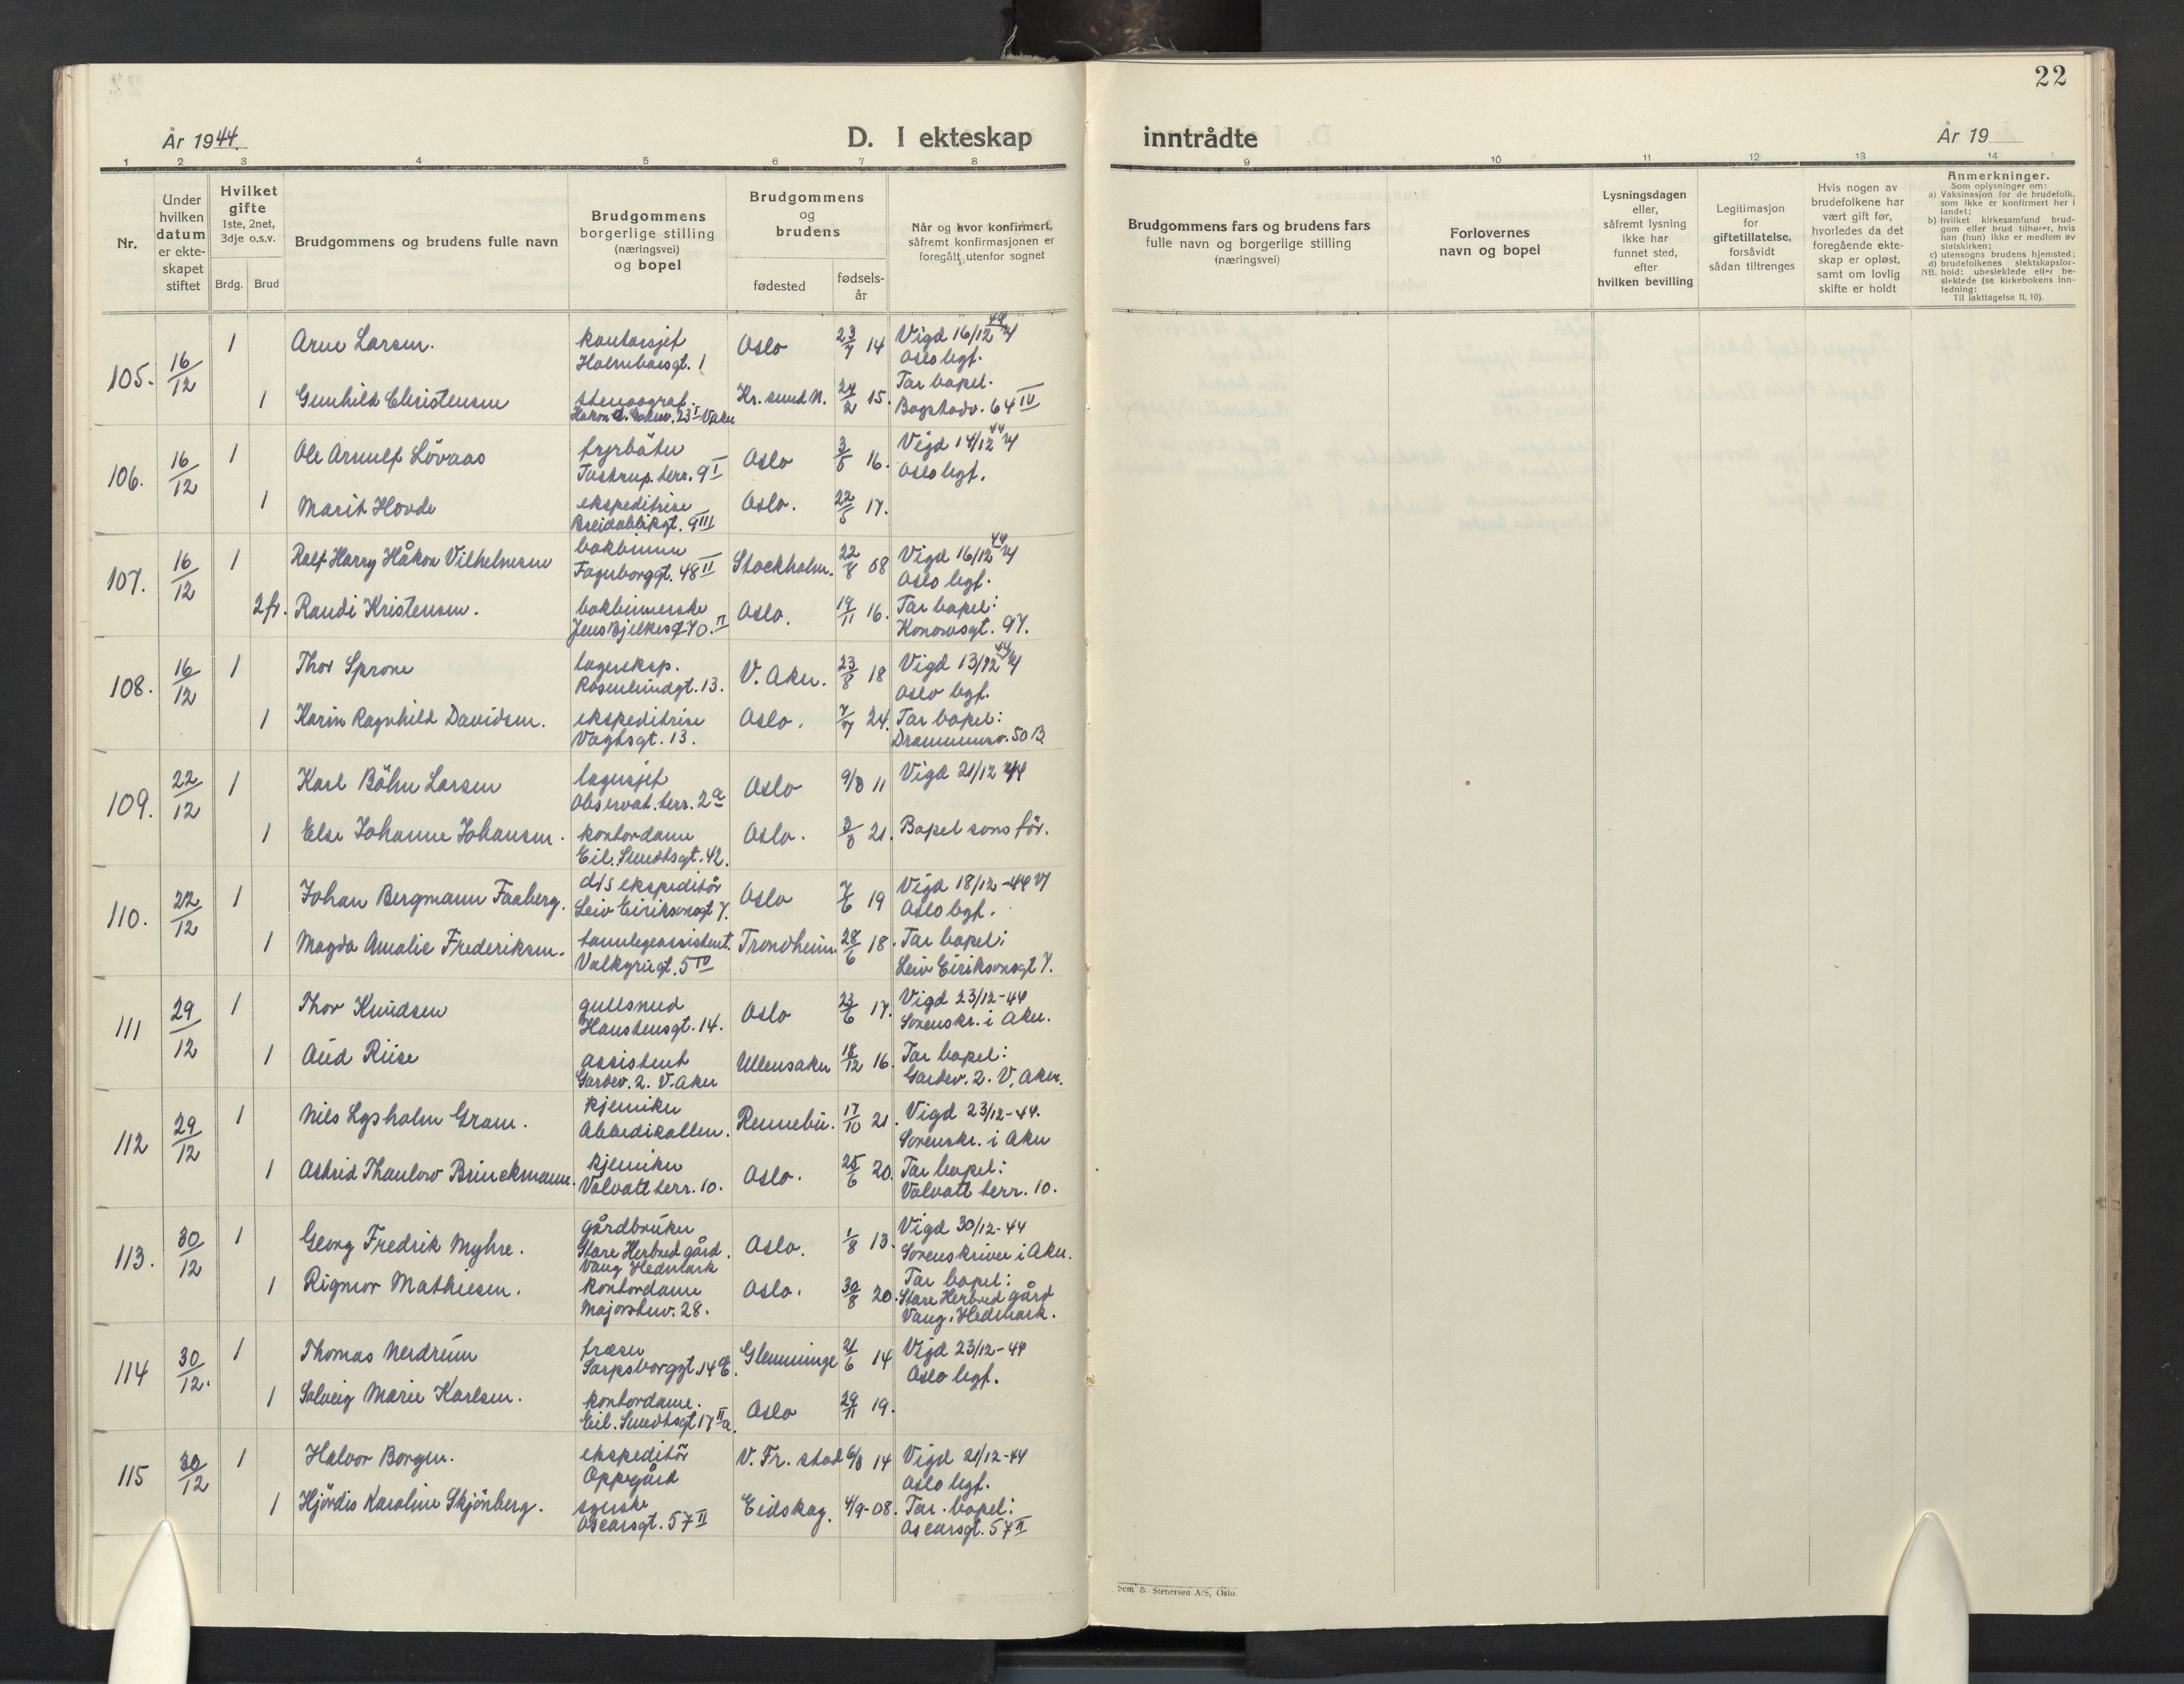 22
År 1944.
D. I ekteskap inntrådte
År 19
1 2 3 4 5 6 7 8 9 10 11 12 13 14
Nr.
Under
hvilken
datum
er ekte-
skapet
stiftet
Hvilket
gifte
1ste, 2net,
3dje o.s.v.
Brdg. Brud
Brudgommens og brudens fulle navn
Brudgommens
borgerlige stilling
(næringsvei)
og bopel
Brudgommens
og
brudens
fødested
fødsels-
år
Når og hvor konfirmert,
såfremt konfirmasjonen er
foregått utenfor sognet
Brudgommens fars og brudens fars
fulle navn og borgerlige stilling
(næringsvei)
Forlovernes
navn og bopel
Lysningsdagen
eller,
såfremt lysning
ikke har
funnet sted,
efter
hvilken bevilling
Legitimasjon
for
giftetillatelse,
forsåvidt
sådan tiltrenges
Hvis nogen av
brudefolkene har
vært gift før,
hvorledes da det
foregående ekte-
skap er opløst,
samt om lovlig
skifte er holdt
Anmerkninger.
Som oplysninger om:
a) Vaksinasjon for de brudefolk,
som ikke er konfirmert her i
landet;
b) hvilket kirkesamfund brud-
gom eller brud tilhører, hvis
han (hun) ikke er medlem av
statskirken;
c) utensogns brudens hjemsted;
d) brudefolkenes slektskapsfor-
NB. hold: ubeslektede eller be-
slektede (se kirkebokens inn-
ledning:
Til iakttagelse II, 10).
105. 16/12 1 Arne Larsen. kontorsjef Oslo 23/7 14 Vigd 16/12 44
Holmboesgt. 1 Oslo bgf.
1 Gunhild Christensen stenograf. Kr. sund N. 24/2 15. Tar bopel.
23 I V. Aker Bogstadv. 64 IV
106. 16/12 1 Ole Arnulf Lövaas fyrböter Oslo 3/5 16. Vigd 14/12 44
Tostrup. terr. 9 I Oslo bgf.
1 Marit Hovde ekspeditrise Oslo. 22/5 17.
Breidablikgt. 9 III
107. 16/12 1 Ralf Harry Håkon Vilhelmsen bokbinner Stockholm. 22/8 08 Vigd 16/12 44
Fagerborggt. 48 II Oslo bgf.
2 fr. Randi Kristensen. bokbinnerske Oslo. 19/11 16. Tar bopel:
Jens Bjelkesgt 70. II Konowsgt. 97.
108. 16/12 1 Thor Sprone lagereksp. V. Aker. 23/8 18 Vigd 13/12 44
Rosenlundgt. 13. Oslo bgf.
1 Karin Ragnhild Davidsen. ekspeditrise Oslo. 7/7 24. Tar bopel:
Vogtsgt. 13. Drammensv. 50 B
109. 22/12 1 Karl Böhn Larsen lagersjef Oslo 9/3 11 Vigd 21/12 44
Observat. terr. 2 a
1 Else Johanne Johansen. kontordame Oslo. 3/3 21. Bopel som för.
Eil. Sundtsgt. 42.
110. 22/12 1 Johan Bergmann Faaberg. d/s ekspeditör Oslo 7/6 19 Vigd 18/12-44
Leiv Eiriksonsgt 7. Oslo bgf.
1 Magda Amalie Frederiksen. tannlegeassistent. Trondheim. 28/6 18. Tar bopel:
Valkyriegt. 5 IV Leiv Eiriksonsgt 7.
111 29/12 1 Thor Knudsen gullsmed Oslo 23/6 17. Vigd 23/12-44
Hanstensgt. 14. Sorenskr. i Aker.
1 Aud Riise assistent Ullensaker 18/12 16. Tar bopel:
Gardev. 2. V. Aker Gardev. 2. V. Aker.
112 29/12 1 Nils Lysholm Gram. kjemiker Rennebu. 17/10 21. Vigd 23/12-44.
Abbedikollen. Sorenskr. i Aker
1 Astrid Thaulow Brinckmann. kjemiker Oslo. 25/6 20. Tar bopel:
Volvatt terr. 10. Volvatt terr. 10.
113. 30/12 1 Georg Fredrik Myhre. gårdbruker Oslo. 1/8 13. Vigd 30/12-44
Store Herbred gård. Sorenskriver i Aker.
Vang Hedmark
1 Rigmor Mathiesen. kontordame Oslo. 30/8 20. Tar bopel:
Majorstuv. 28. Store Herbred gård
Vang, Hedmark.
114 30/12. 1 Thomas Nerdrum fræser Glemminge 21/6 14 Vigd 23/12-44
Sarpsborggt. 14 E. Oslo bgf.
1 Solveig Marie Karlsen. kontordame. Oslo 29/11 19.
Eil. Sundtsgt 17 II a.
115 30/12 1 Halvor Borgen. ekspeditör V. Fr. stad 6/3 14 Vigd 21/12-44
Oppegård Oslo bgf.
1 Hjördis Karoline Skjönberg. syerske Eidskog. 4/9-08. Tar bopel:
Oscarsgt. 57 II Oscarsgt. 57 II
Sem & Stenersen A/S, Oslo.